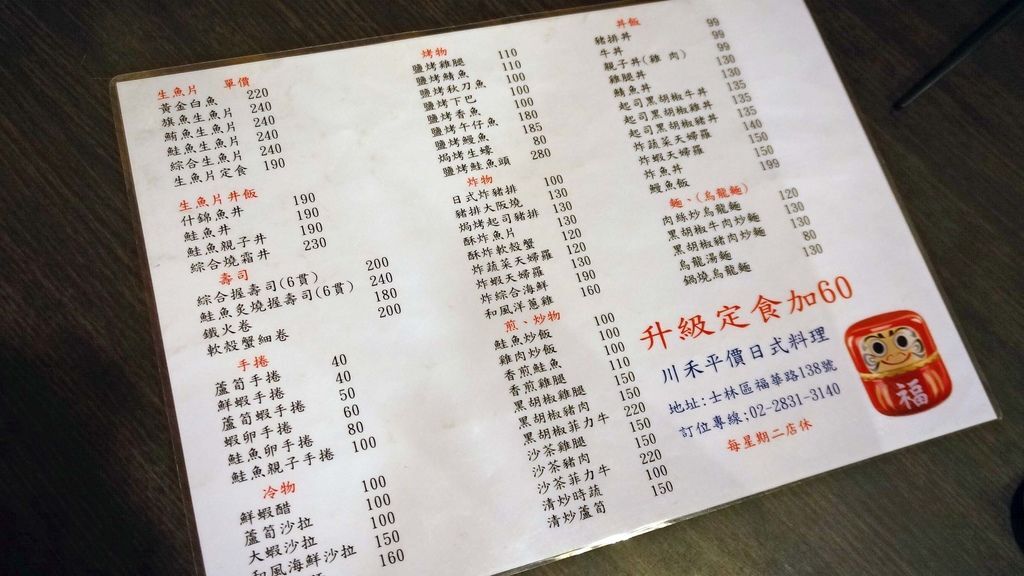 生魚片 單價
黃金白魚 220
旗魚生魚片 240
鮪魚生魚片 240
鮭魚生魚片 240
綜合生魚片 240
生魚片定食 190
生魚片丼飯
什錦魚丼 190
鮭魚丼 190
鮭魚親子丼 190
綜合燒霜丼 230
壽司
綜合握壽司(6貫) 200
鮭魚炙燒握壽司(6貫) 240
鐵火卷 180
軟殼蟹細卷 200
手捲
蘆筍手捲 40
鮮蝦手捲 40
蘆筍蝦手捲 50
蝦卵手捲 60
鮭魚卵手捲 80
鮭魚親子手捲 100
冷物
鮮蝦醋 100
蘆筍沙拉 100
大蝦沙拉 100
和風海鮮沙拉 150
160
烤物
鹽烤雞腿 110
鹽烤鯖魚 110
鹽烤秋刀魚 100
鹽烤下巴 100
鹽烤香魚 100
鹽烤午仔魚 180
鹽烤鰻魚 185
焗烤生蠔 80
鹽烤鮭魚頭 280
炸物
日式炸豬排 100
豬排大阪燒 130
焗烤起司豬排 130
酥炸魚片 130
酥炸軟殼蟹 120
炸蔬菜天婦羅 120
炸蝦天婦羅 130
炸綜合海鮮 190
和風洋蔥雞 160
煎、炒物
鮭魚炒飯 100
雞肉炒飯 100
香煎鮭魚 100
香煎雞腿 110
黑胡椒雞腿 150
黑胡椒豬肉 150
黑胡椒菲力牛 220
沙茶雞腿 150
沙茶豬肉 150
沙茶菲力牛 220
清炒時蔬 100
清炒蘆筍 150
丼飯
豬排丼 99
牛丼 99
親子丼(雞肉) 99
雞腿丼 130
鯖魚丼 130
起司黑胡椒牛丼 135
起司黑胡椒雞丼 135
起司黑胡椒豬丼 135
炸蔬菜天婦羅 140
炸蝦天婦羅 150
炸魚丼 150
鰻魚飯 199
麵、(烏龍麵)
肉絲炒烏龍麵 120
黑胡椒牛肉炒麵 130
黑胡椒豬肉炒麵 130
烏龍湯麵 80
鍋燒烏龍麵 130
升級定食加60
川禾平價日式料理
地址:士林區福華路138號
訂位專線:02-2831-3140
每星期二店休
福